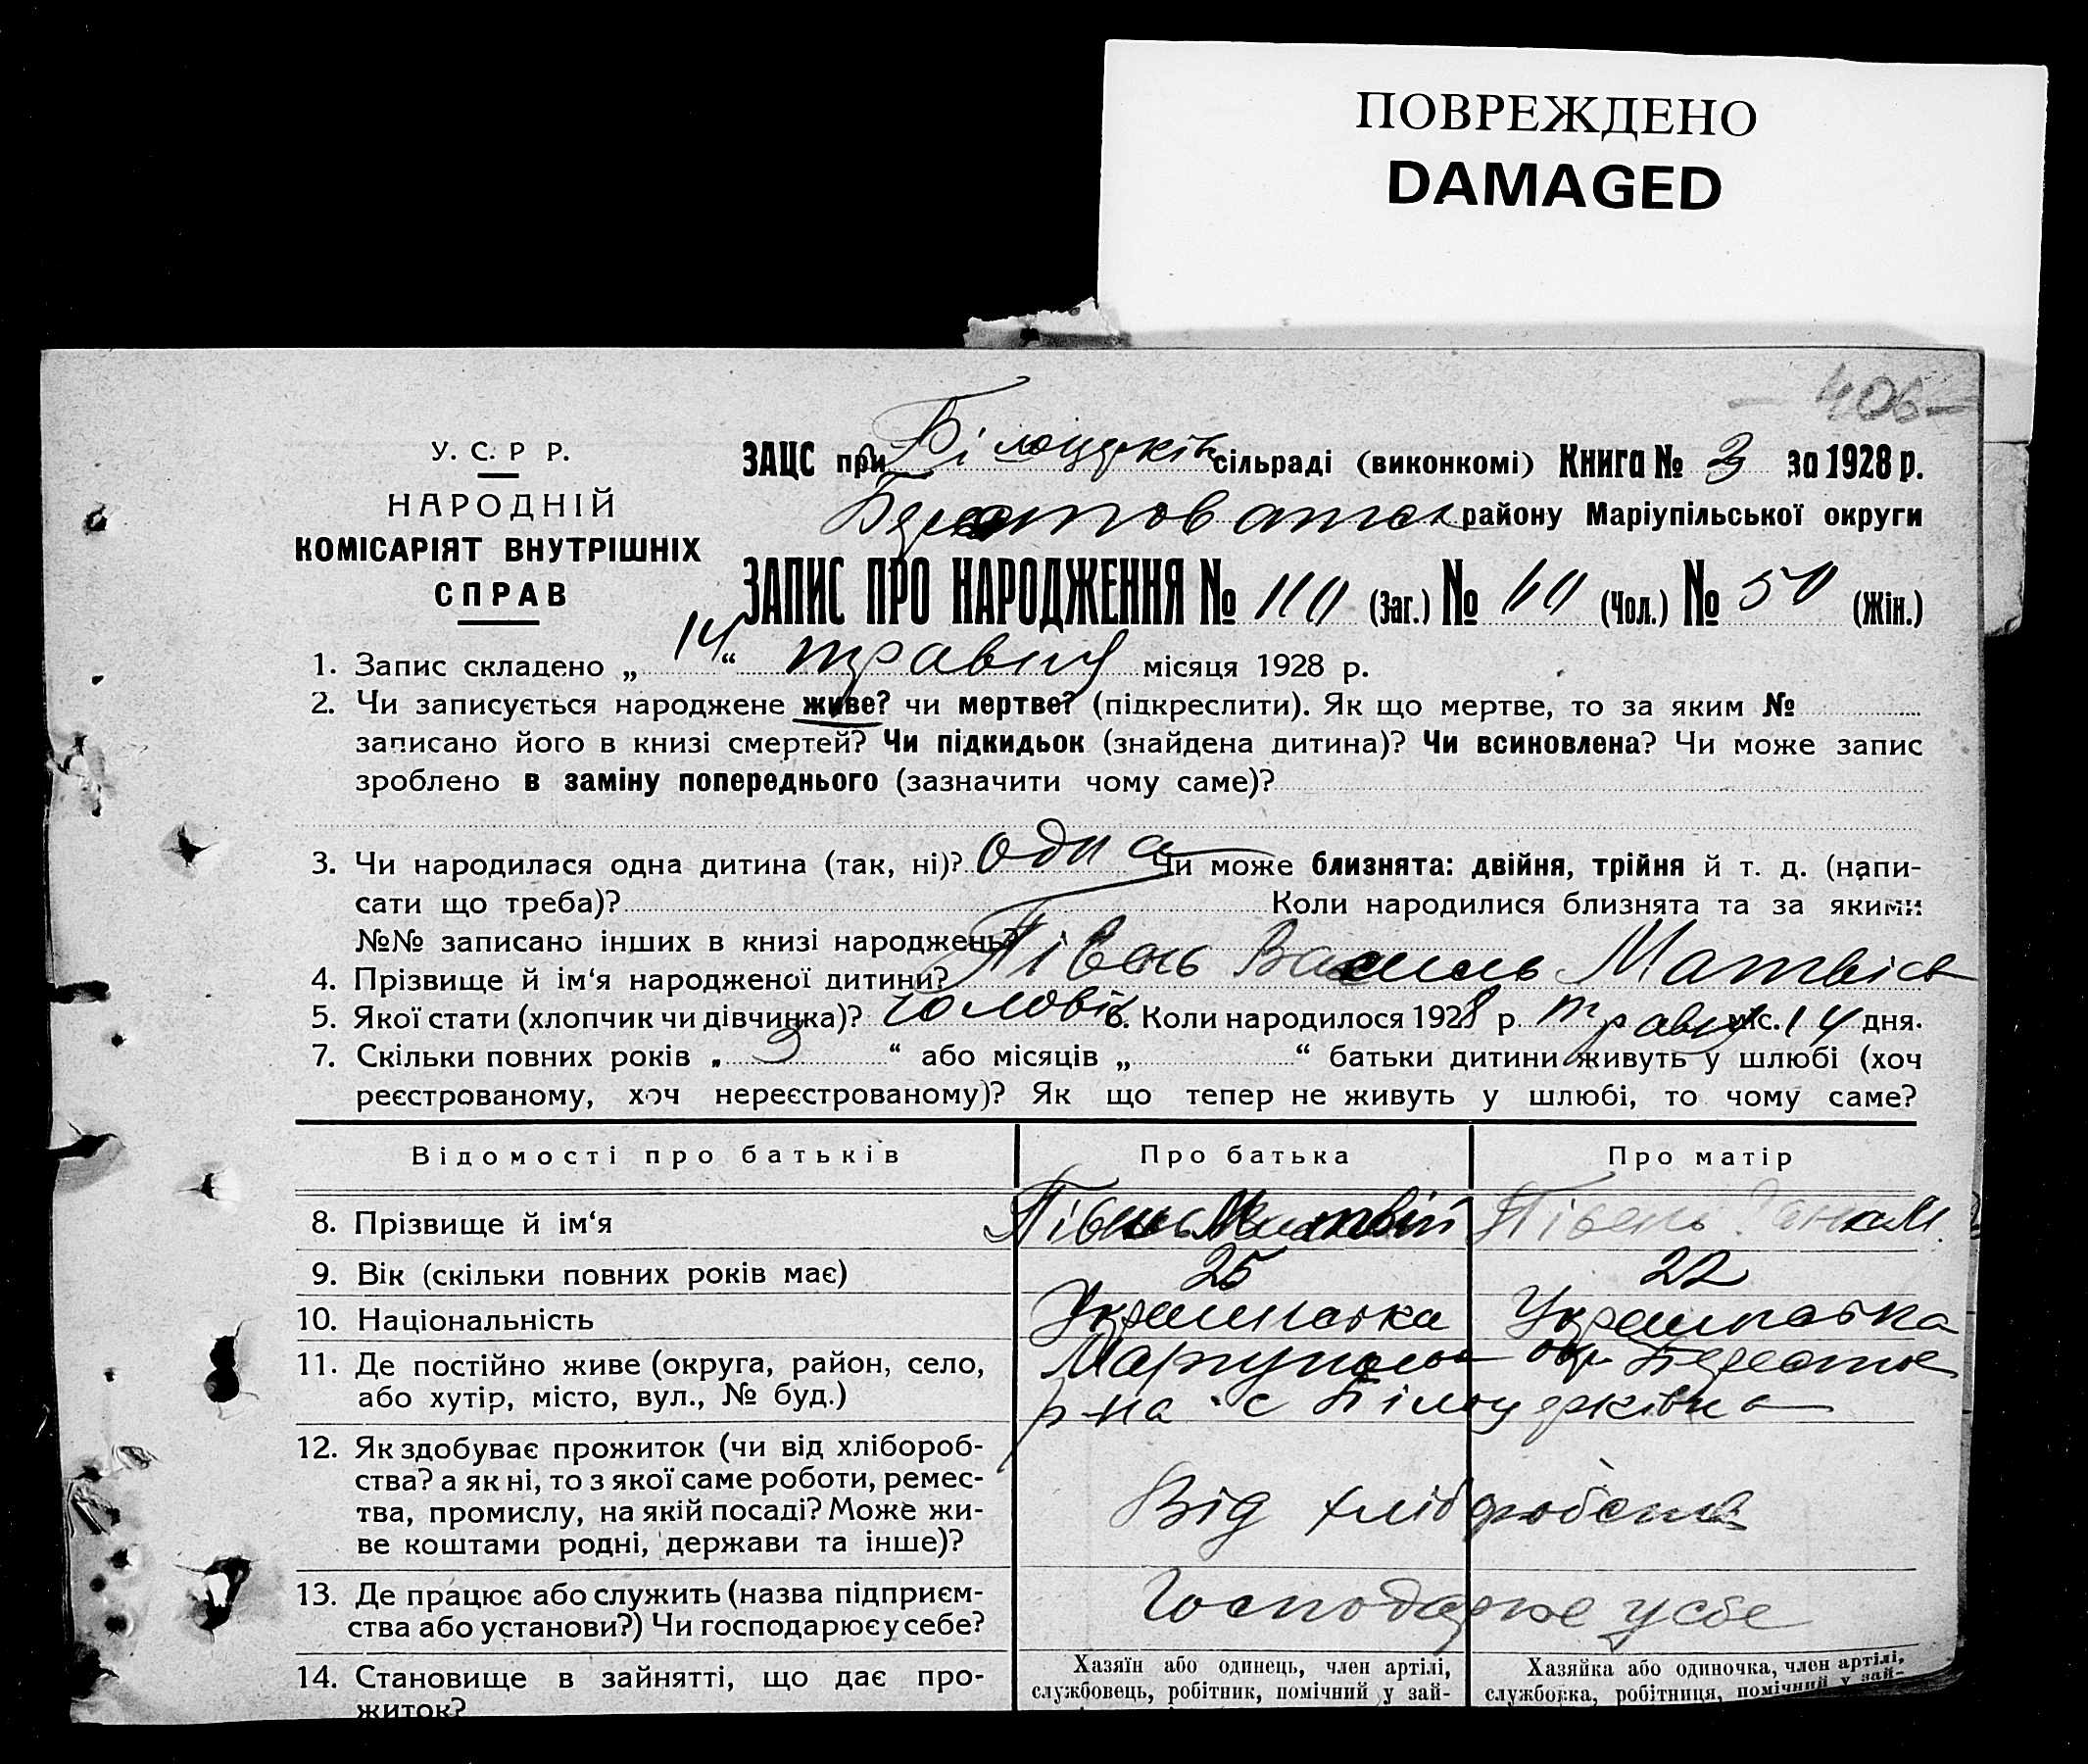 ПОВРЕЖДЕНО
DAMAGED
- 406 -
У. С. Р Р.
НАРОДНІЙ
КОМІСАРІЯТ ВНУТРІШНІХ
СПРАВ
ЗАЦС при Білоцерків сільраді (виконкомі) Книга № 3 за 1928 р.
району Маріупільської округи
ЗАПИС ПРО НАРОДЖЕННЯ № 110 (Заг.) № 60 (Чол.) № 50 (Жін.)
1. Запис складено „ 14 “ травня місяця 1928 р.
2. Чи записується народжене живе? чи мертве? (підкреслити). Як що мертве, то за яким №
записано його в книзі смертей? Чи підкидьок (знайдена дитина)? Чи всиновлена? Чи може запис
зроблено в заміну попереднього (зазначити чому саме)?
3. Чи народилася одна дитина (так, ні)? одна Чи може близнята: двійня, трійня й т. д. (напи-
сати що треба)? Коли народилися близнята та за якими
№№ записано інших в книзі народжень?
4. Прізвище й ім‘я народженої дитини? Півень Василь Матвієв
5. Якої стати (хлопчик чи дівчинка)? чоловік 6. Коли народилося 1928 р травня міс. 14 дня.
7. Скільки повних років „ 3 “ або місяців „ “ батьки дитини живуть у шлюбі (хоч
реєстрованому, хоч нереєстрованому)? Як що тепер не живуть у шлюбі, то чому саме?
Відомості про батьків Про батька Про матір
8. Прізвище й ім‘я Півень Матвій Півень М.
9. Вік (скільки повних років має) 25 22
10. Національність Українська Українська
11. Де постійно живе (округа, район, село, окр.
або хутір, місто, вул., № буд.) р-на с Білоцерківка
12. Як здобуває прожиток (чи від хлібороб-
ства? а як ні, то з якої саме роботи, ремес-
тва, промислу, на якій посаді? Може жи-
ве коштами родні, держави та інше)?
Від хліборобства
13. Де працює або служить (назва підприєм-
ства або установи?) Чи господарює у себе?
Господарює у себе
14. Становище в зайнятті, що дає про-
житок?
Хазяїн або одинець, член артілі,
службовець, робітник, помічний у зай-
Хазяйка або одиночка, член артілі,
службовка, робітниця, помічний у зай-